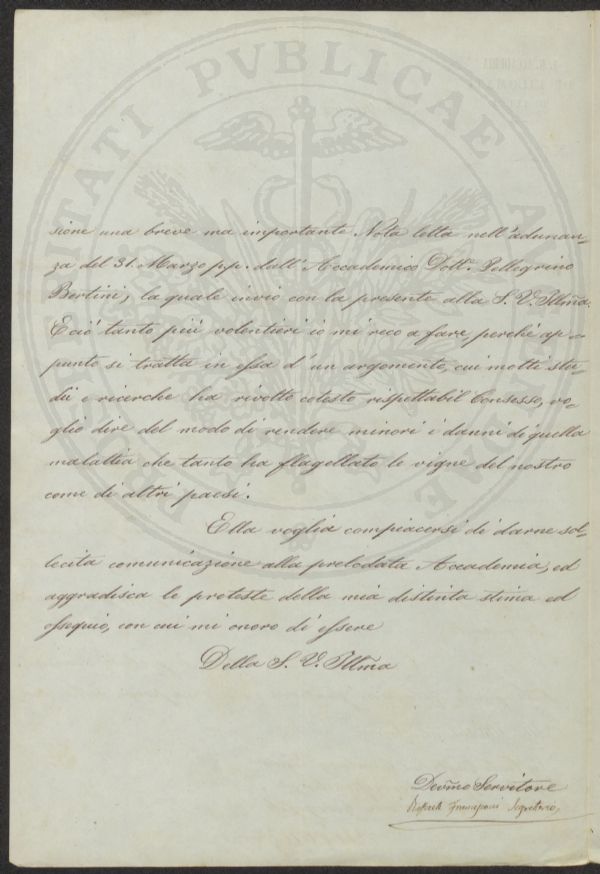 PROSPERITATI PVBLICAE AVGENDAE
sione una breve ma importante Nota letta nell'adunan-
za del 31. Marzo p.p. dall'Accademico Dott. Pellegrino
Bertini, la quale invio con la presente alla S. V. Illm̃a.
E ciò tanto più volentieri io mi reco a fare, perchè ap-
punto si tratta in essa d'un argomento, cui molti stu-
dii e ricerche ha rivolto cotesto rispettabil Consesso, vo-
glio dire del modo di rendere minori i danni di quella
malattia che tanto ha flagellato le vigne del nostro
come di altri paesi.
Ella voglia compiacersi di darne sol-
lecita comunicazione alla prelodata Accademia, ed
aggradisca le proteste della mia distinta stima ed
ossequio, con cui mi onoro di essere
Della S. V. Illm̃a
Devm̃o Servitore
Segretario